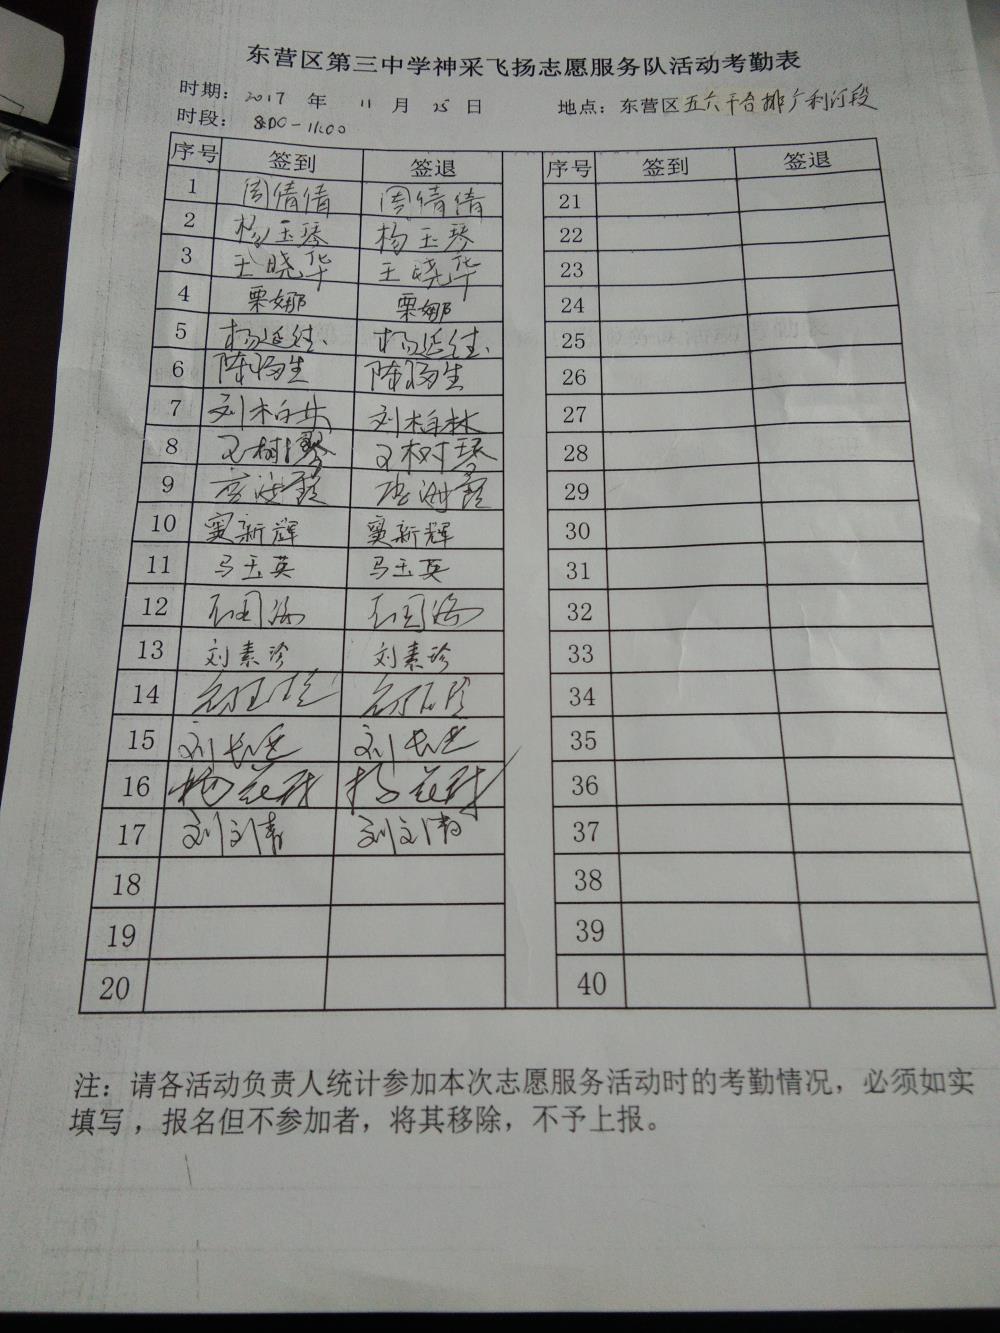 东营区第三中学神采飞扬志愿服务队活动考勤表
时期：2017 年 11 月 25 日 地点：东营区五六干合排广利河段
时段：8:00-11:00
序号 签到 签退 序号 签到 签退
1 周倩倩 周倩倩 21
2 杨玉琴 杨玉琴 22
3 王晓华 王晓华 23
4 栗娜 栗娜 24
5 杨延 杨延 25
6 陈杨生 陈杨生 26
7 刘柏林 刘柏林 27
8 树琴 树琴 28
9 29
10 窦新辉 窦新辉 30
11 马玉英 马玉英 31
12 石国海 石国海 32
13 刘素珍 刘素珍 33
14 34
15 刘长 刘长 35
16 杨 杨 36
17 刘文清 刘文清 37
18 38
19 39
20 40
注：请各活动负责人统计参加本次志愿服务活动时的考勤情况，必须如实
填写，报名但不参加者，将其移除，不予上报。